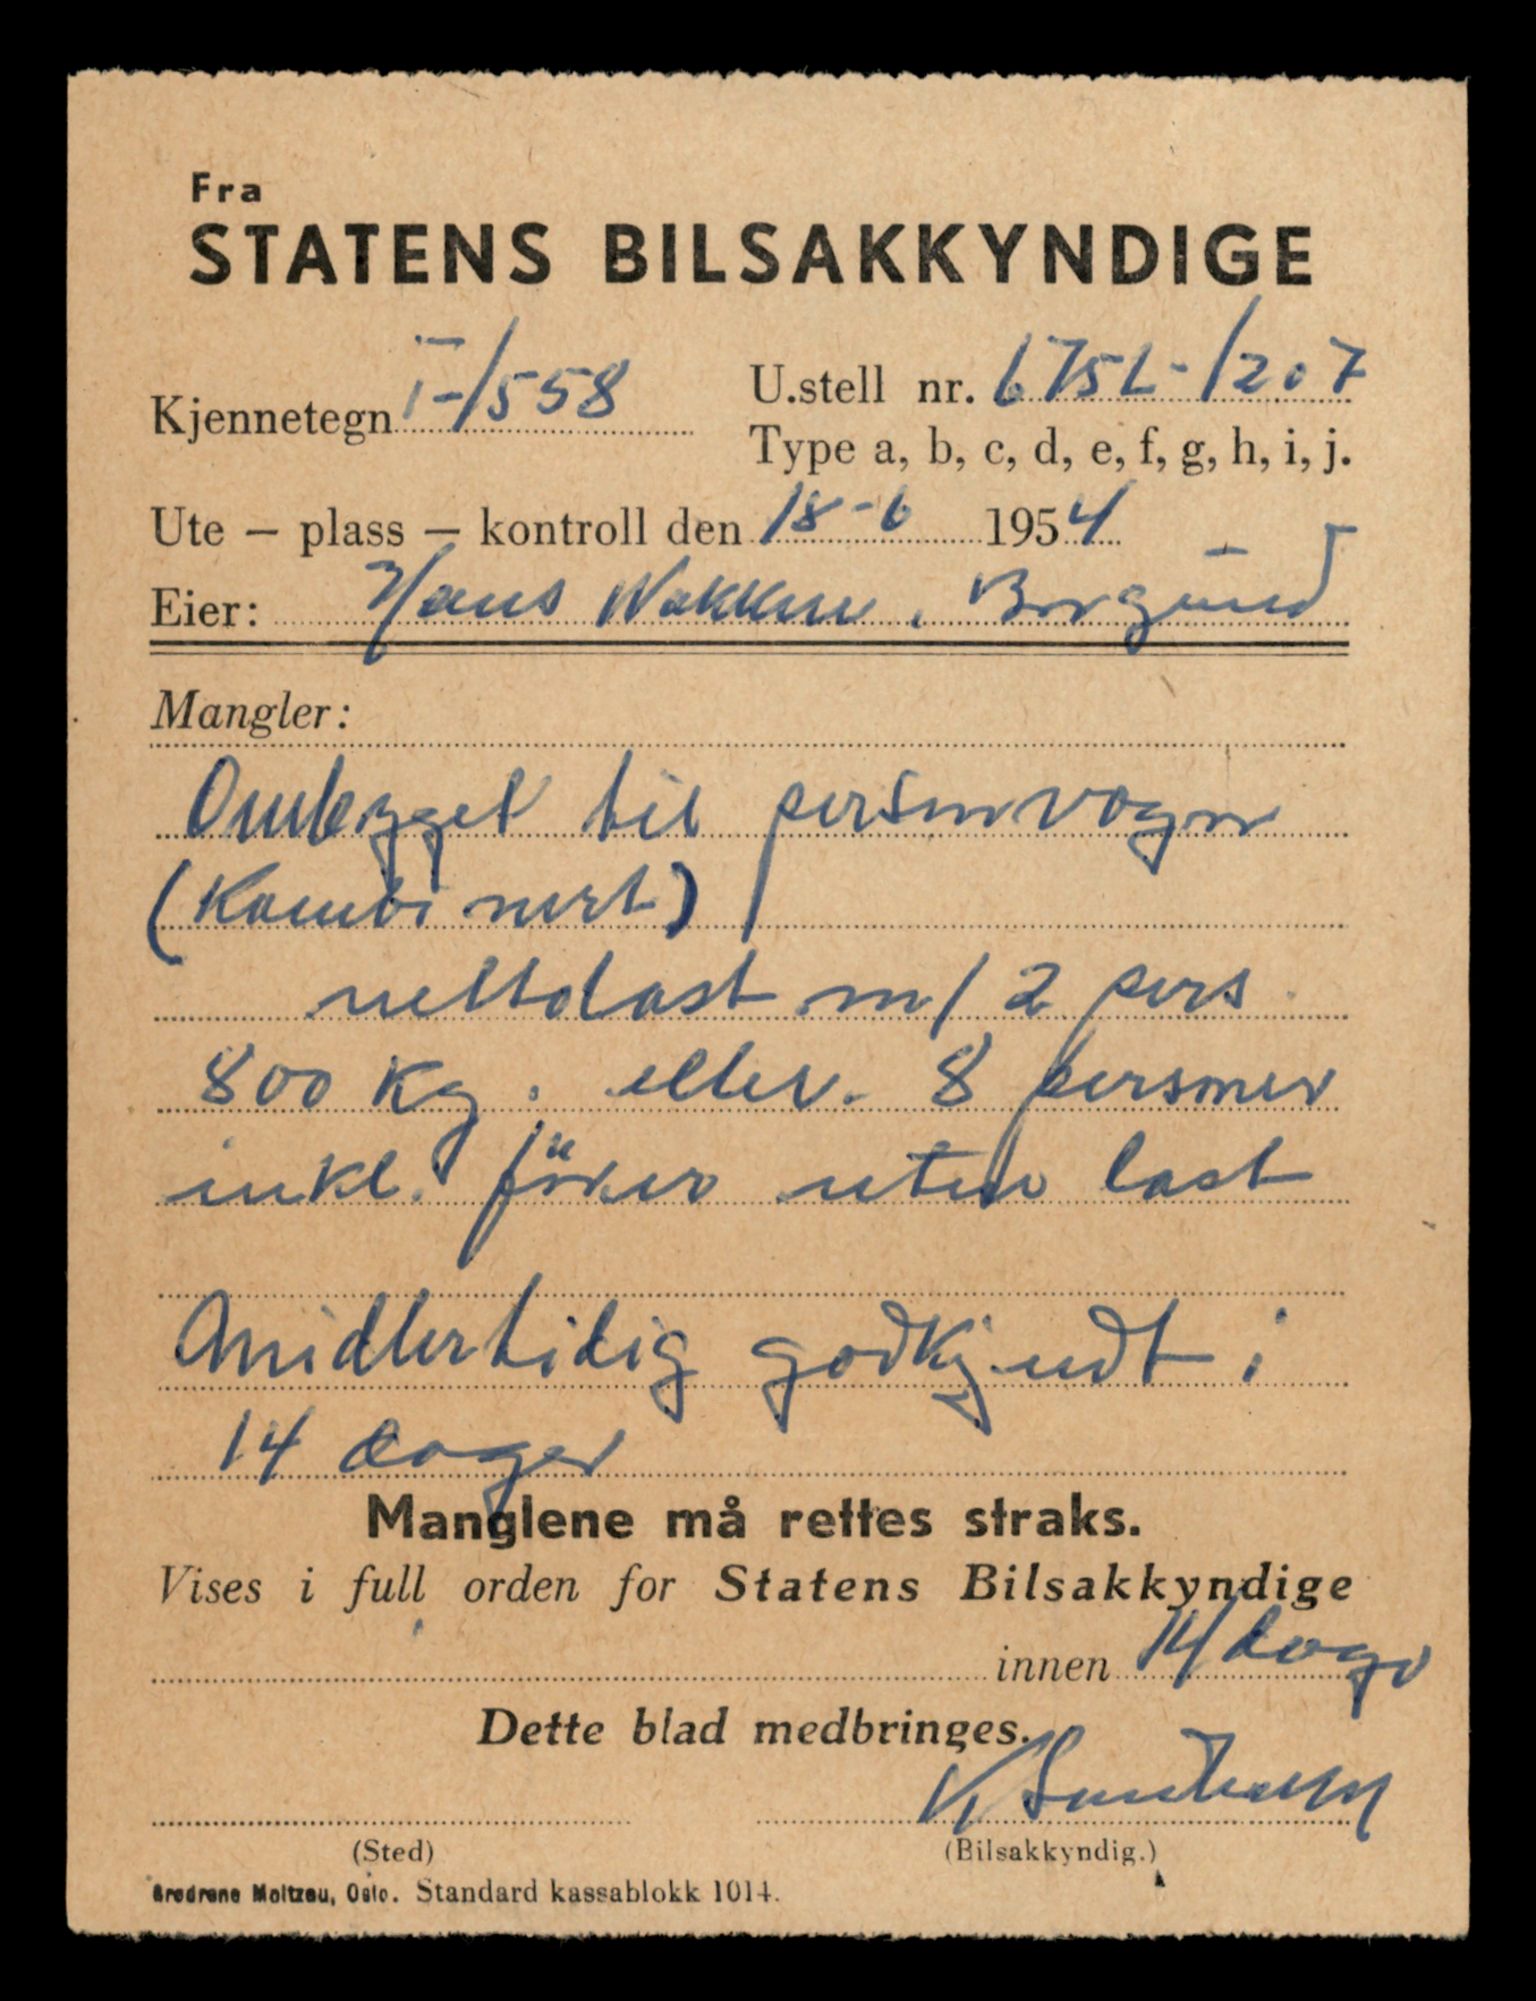 Fra
STATENS BILSAKKYNDIGE
Kjennetegn T-1558 U.stell nr. 675L-1207
Type a, b, c, d, e, f, g, h, i, j.
Ute – plass – kontroll den 18-6 1954
Eier: Hans Nakken, Borgund
Mangler:
Ombygget til personvogn
(Kombinert)
nettolast m/ 2 pers.
800 kg. eller. 8 personer
inkl. förer uten last
Midlertidig godkjendt i
14 dager
Manglene må rettes straks.
Vises i full orden for Statens Bilsakkyndige
innen 14 dager
Dette blad medbringes.
(Sted) (Bilsakkyndig.)
Brødrene Moltzau, Oslo. Standard kassablokk 1014.